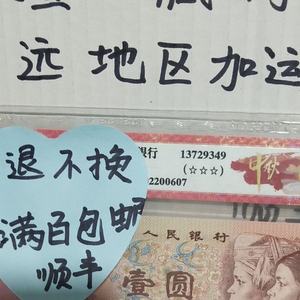 远地区加运
银行 13729349
(☆☆☆)
2200607
退不换
满百包邮
顺丰
人民银行
壹圆